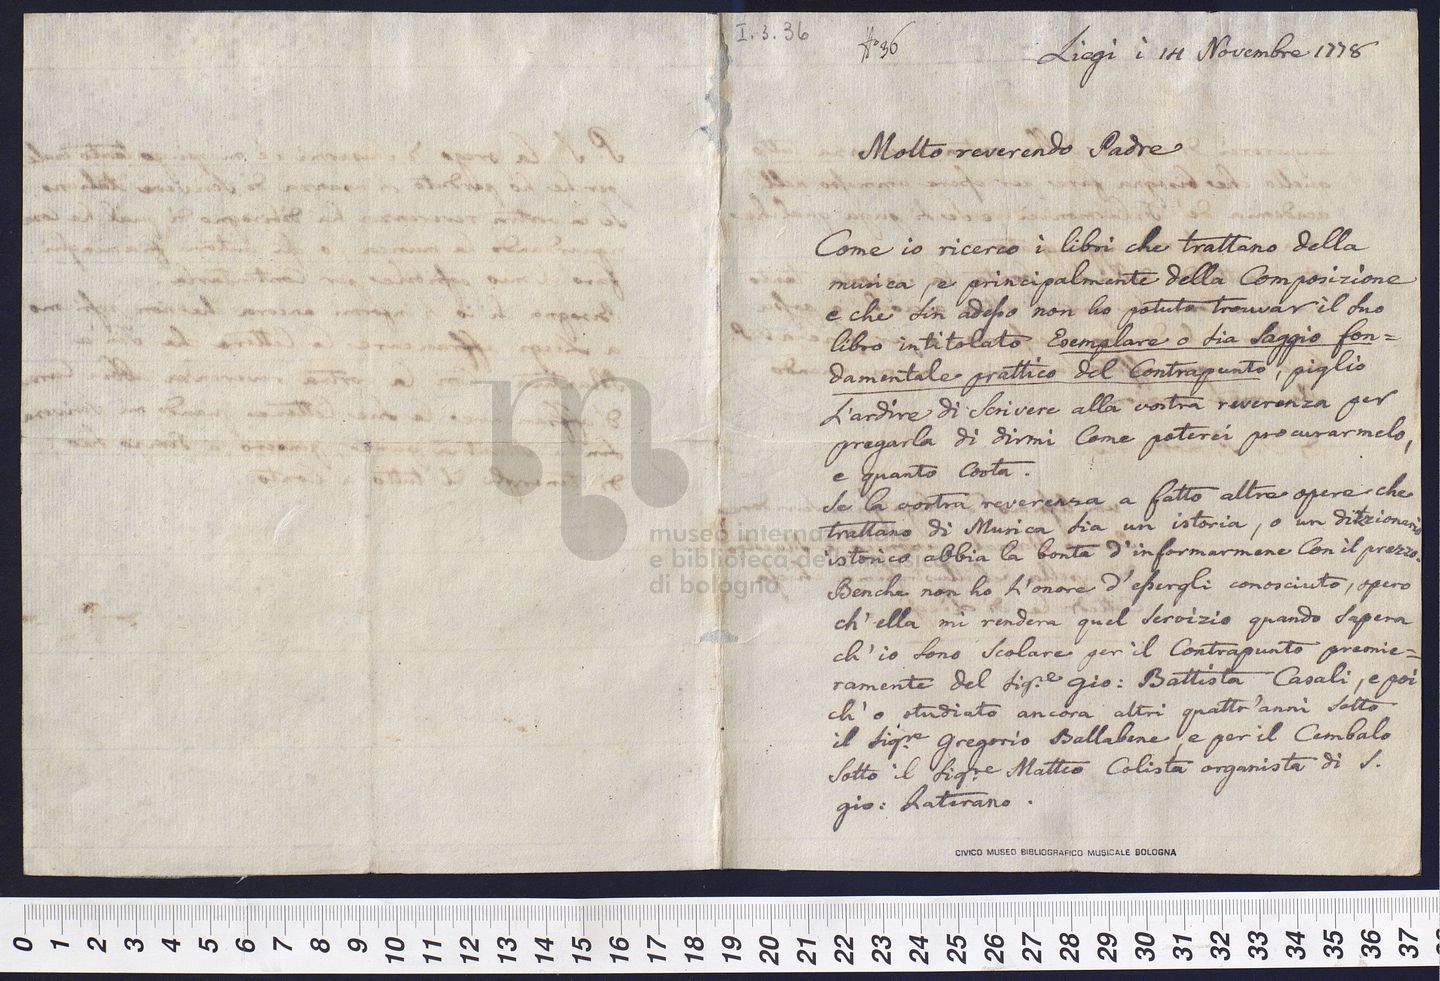 I.3.36
N° 36
Liegi i 14 Novembre 1778
Molto reverendo Padre
Come io ricerco i libri che trattano della
musica, e principalmente della Composizione
e che sin adesso non ho potuto trouvar il suo
libro intitolato Esemplare o sia Saggio fon=
damentale prattico del Contrapunto, piglio
L'ardire di scrivere alla vostra reverenza per
pregarla di dirmi Come poterei procurarmelo,
e quanto Costa.
Se la vostra reverenza a fatto altre opere che
trattano di Musica sia un istoria, o un ditzionario
istorico abbia la bonta d'informarmene Con il prezzo.
Benche non ho L'onore d'essergli conosciuto, spero
ch'ella mi rendera quel servizio quando sapera
ch'io sono scolare per il Contrapunto premie=
ramente del sigr.e gio: Battista Casali, e poi
ch'o studiato ancora altri quattr'anni sotto
il sigre Gregorio Ballabene, e per il Cembalo
sotto il sigre Matteo Colista organista di S.
gio: Laterano.
CIVICO MUSEO BIBLIOGRAFICO MUSICALE BOLOGNA
museo internazionale
e biblioteca della musica
di bologna
0 1 2 3 4 5 6 7 8 9 10 11 12 13 14 15 16 17 18 19 20 21 22 23 24 25 26 27 28 29 30 31 32 33 34 35 36 37